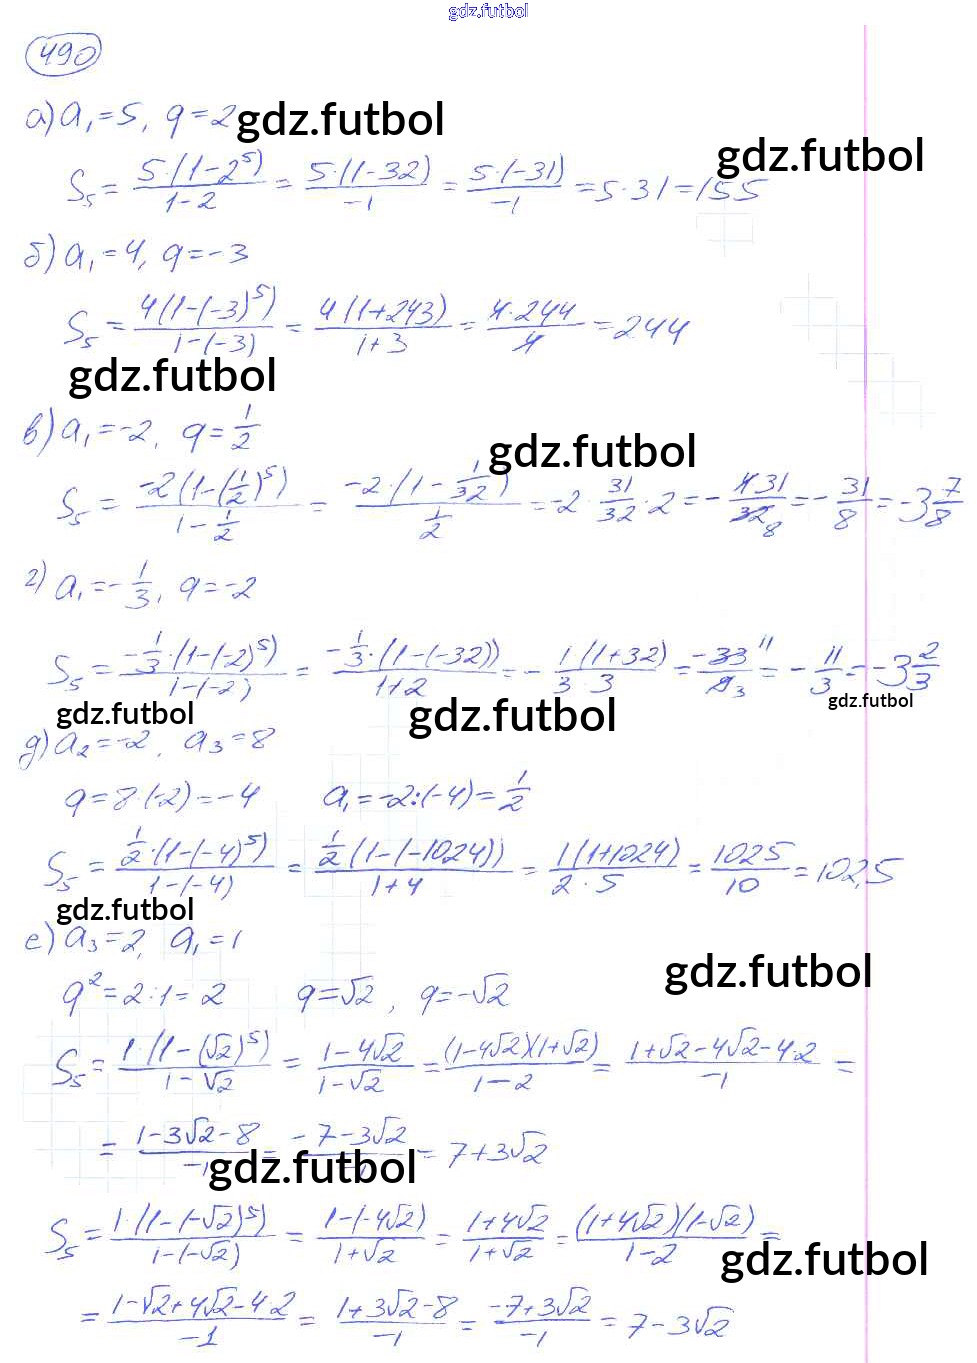 gdz.futbol
490
а) a₁ = 5, q = 2 gdz.futbol
gdz.futbol
S₅ = 5·(1-2⁵)/(1-2) = 5·(1-32)/(-1) = 5·(-31)/(-1) = 5·31 = 155
б) a₁ = 4, q = -3
S₅ = 4(1-(-3)⁵)/(1-(-3)) = 4(1+243)/(1+3) = 4·244/4 = 244
gdz.futbol
в) a₁ = -2, q = 1/2
gdz.futbol
S₅ = -2(1-(1/2)⁵)/(1-1/2) = -2·(1-1/32)/(1/2) = -2·31/32·2 = -4 31/32 8 = -31/8 = -3 7/8
г) a₁ = -1/3, q = -2
S₅ = -1/3·(1-(-2)⁵)/(1-(-2)) = -1/3·(1-(-32))/(1+2) = -1(1+32)/(3·3) = -33 11/9 3 = -11/3 = -3 2/3
gdz.futbol gdz.futbol gdz.futbol
д) a₂ = -2, a₃ = 8
q = 8:(-2) = -4 a₁ = -2:(-4) = 1/2
S₅ = 1/2·(1-(-4)⁵)/(1-(-4)) = 1/2(1-(-1024))/(1+4) = 1(1+1024)/(2·5) = 1025/10 = 102,5
gdz.futbol
е) a₃ = 2, a₁ = 1
gdz.futbol
q² = 2:1 = 2 q = √2, q = -√2
S₅ = 1·(1-(√2)⁵)/(1-√2) = (1-4√2)/(1-√2) = (1-4√2)(1+√2)/(1-2) = (1+√2-4√2-4·2)/(-1) =
= (1-3√2-8)/(-1) = (-7-3√2)/(-1) = 7+3√2
gdz.futbol
S₅ = 1·(1-(-√2)⁵)/(1-(-√2)) = (1-(-4√2))/(1+√2) = (1+4√2)/(1+√2) = (1+4√2)(1-√2)/(1-2) =
gdz.futbol
= (1-√2+4√2-4·2)/(-1) = (1+3√2-8)/(-1) = (-7+3√2)/(-1) = 7-3√2